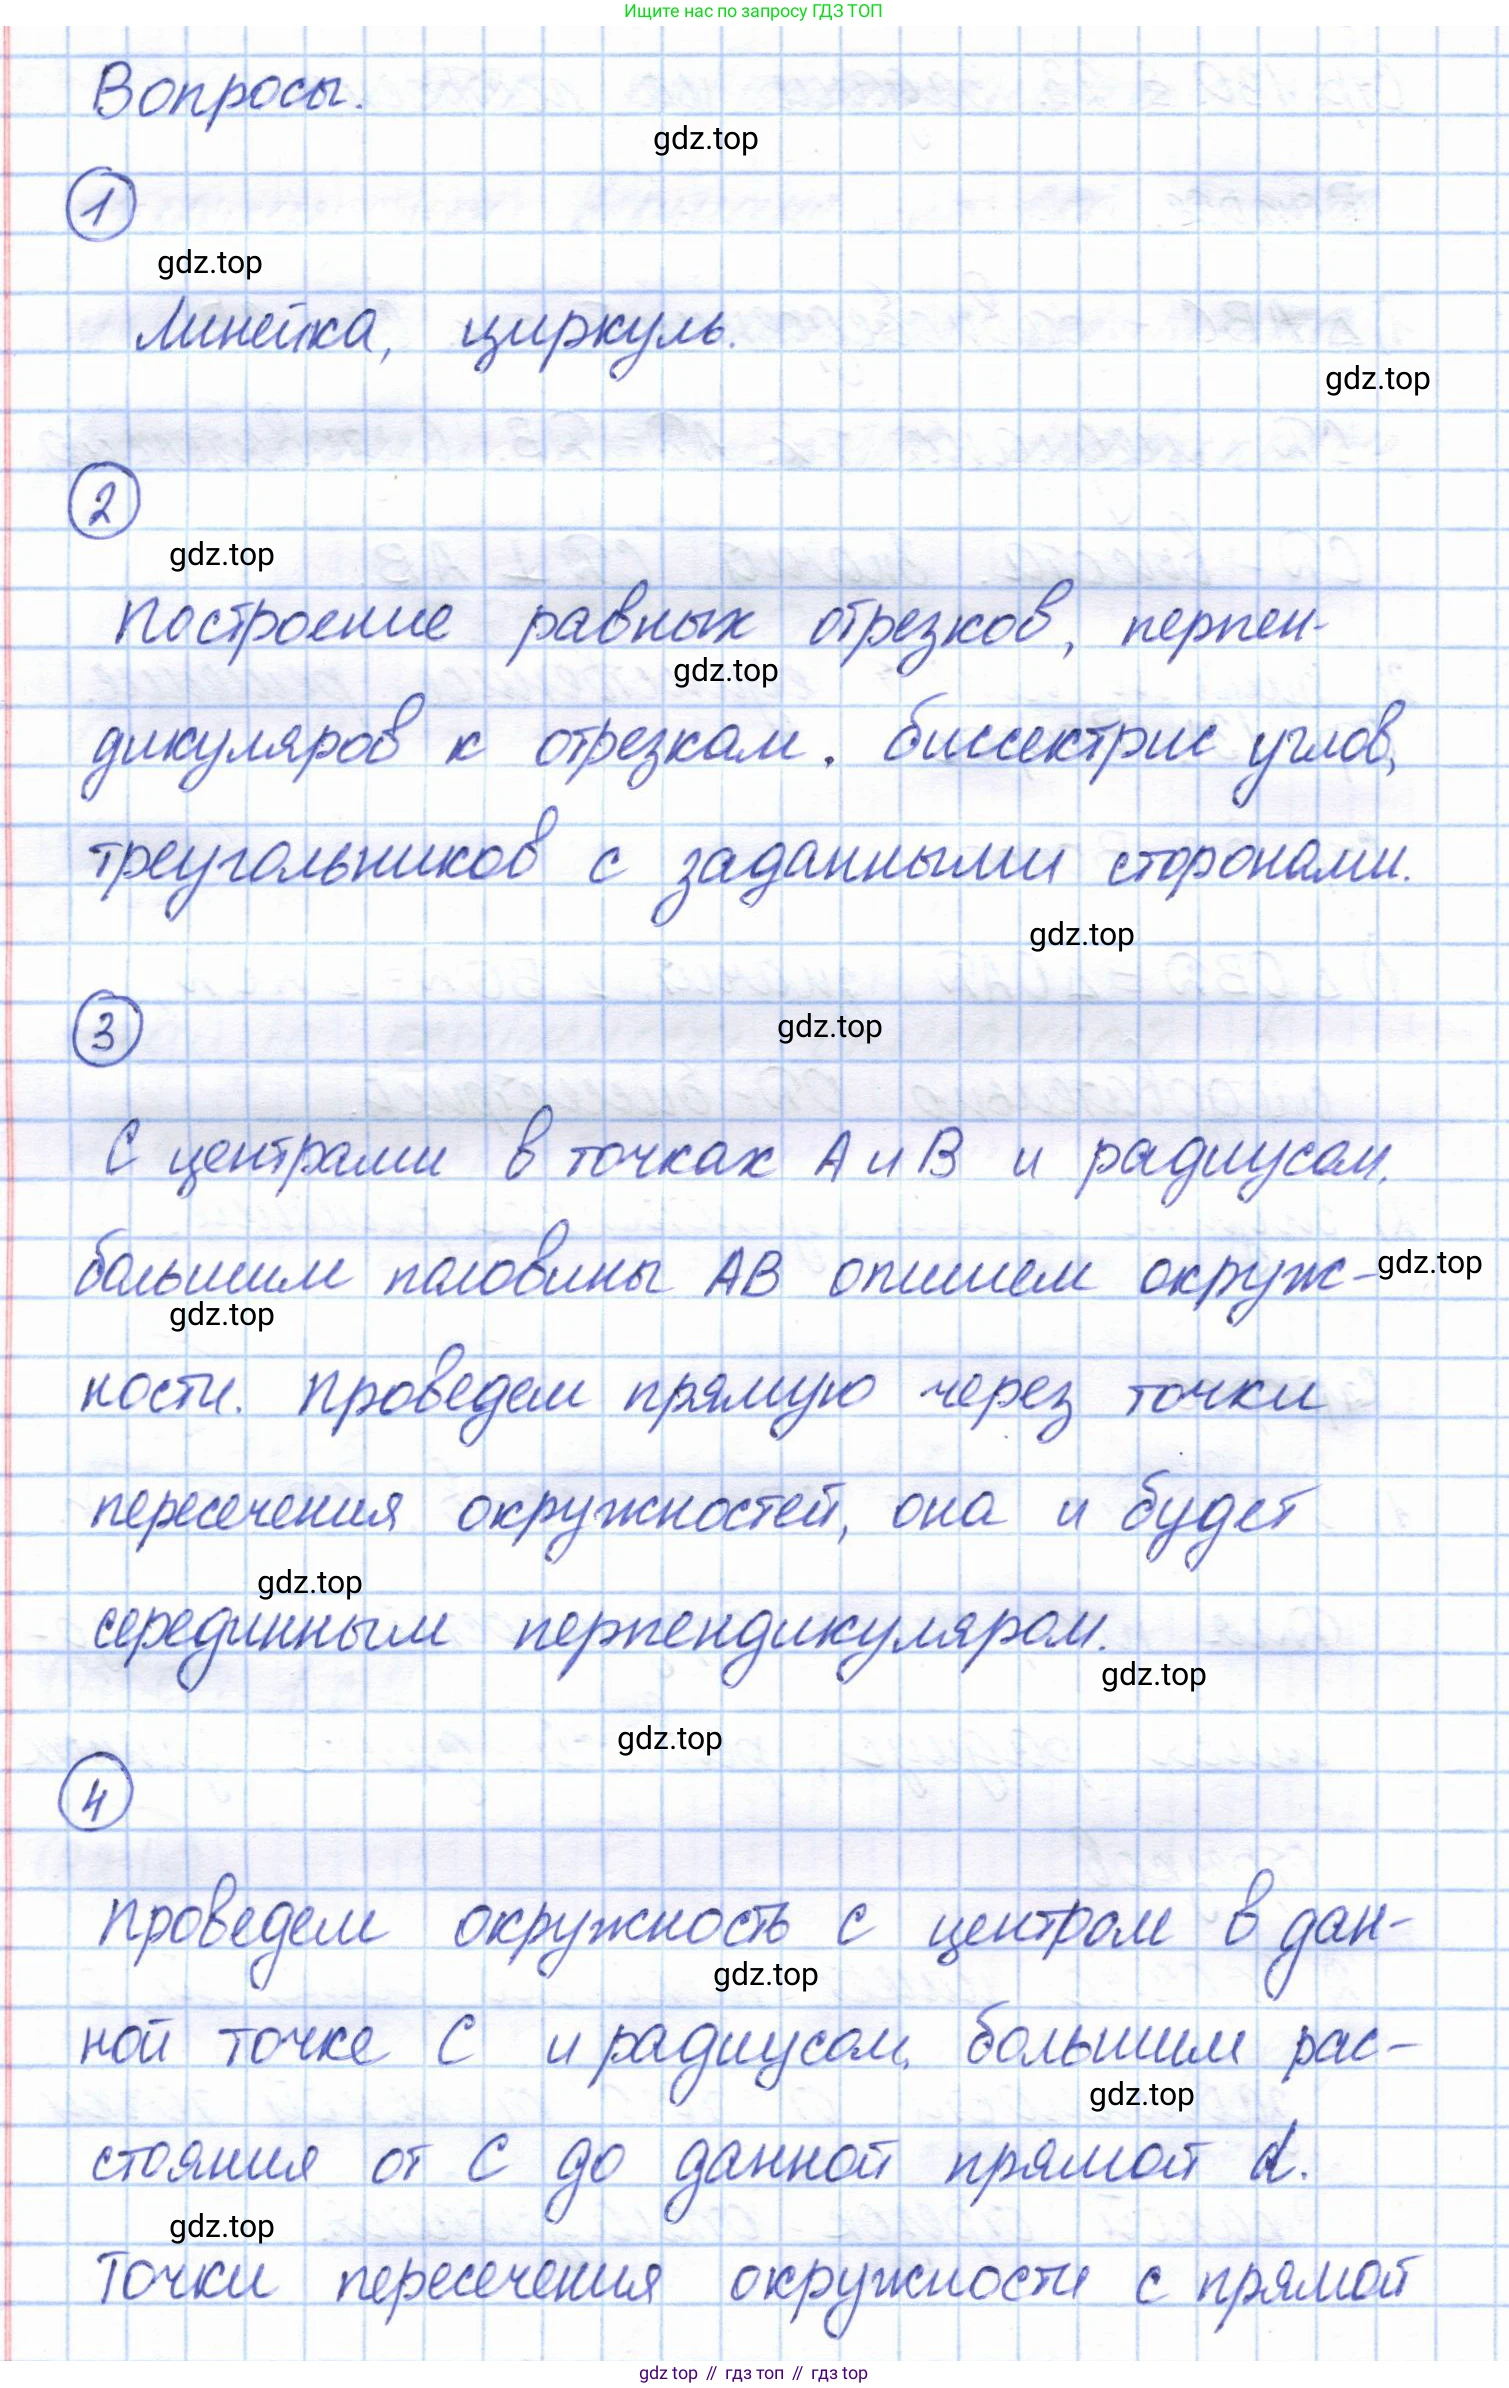 Ищите нас по запросу ГДЗ ТОП
Вопросы.
gdz.top
1
gdz.top
Линейка, циркуль.
gdz.top
2
gdz.top
Построение равных отрезков, перпен-
gdz.top
дикуляров к отрезкам. биссектрис углов,
треугольников с заданными сторонами.
gdz.top
3
gdz.top
С центрами в точках А и В и радиусом,
большим половины АВ опишем окруж-
gdz.top
gdz.top
ности. Проведем прямую через точки
пересечения окружностей, она и будет
gdz.top
серединным перпендикуляром.
gdz.top
gdz.top
4
Проведем окружность с центром в дан-
gdz.top
ной точке С и радиусом, большим рас-
gdz.top
стояния от С до данной прямой d.
gdz.top
Точки пересечения окружности с прямой
gdz top // гдз топ // гдз top